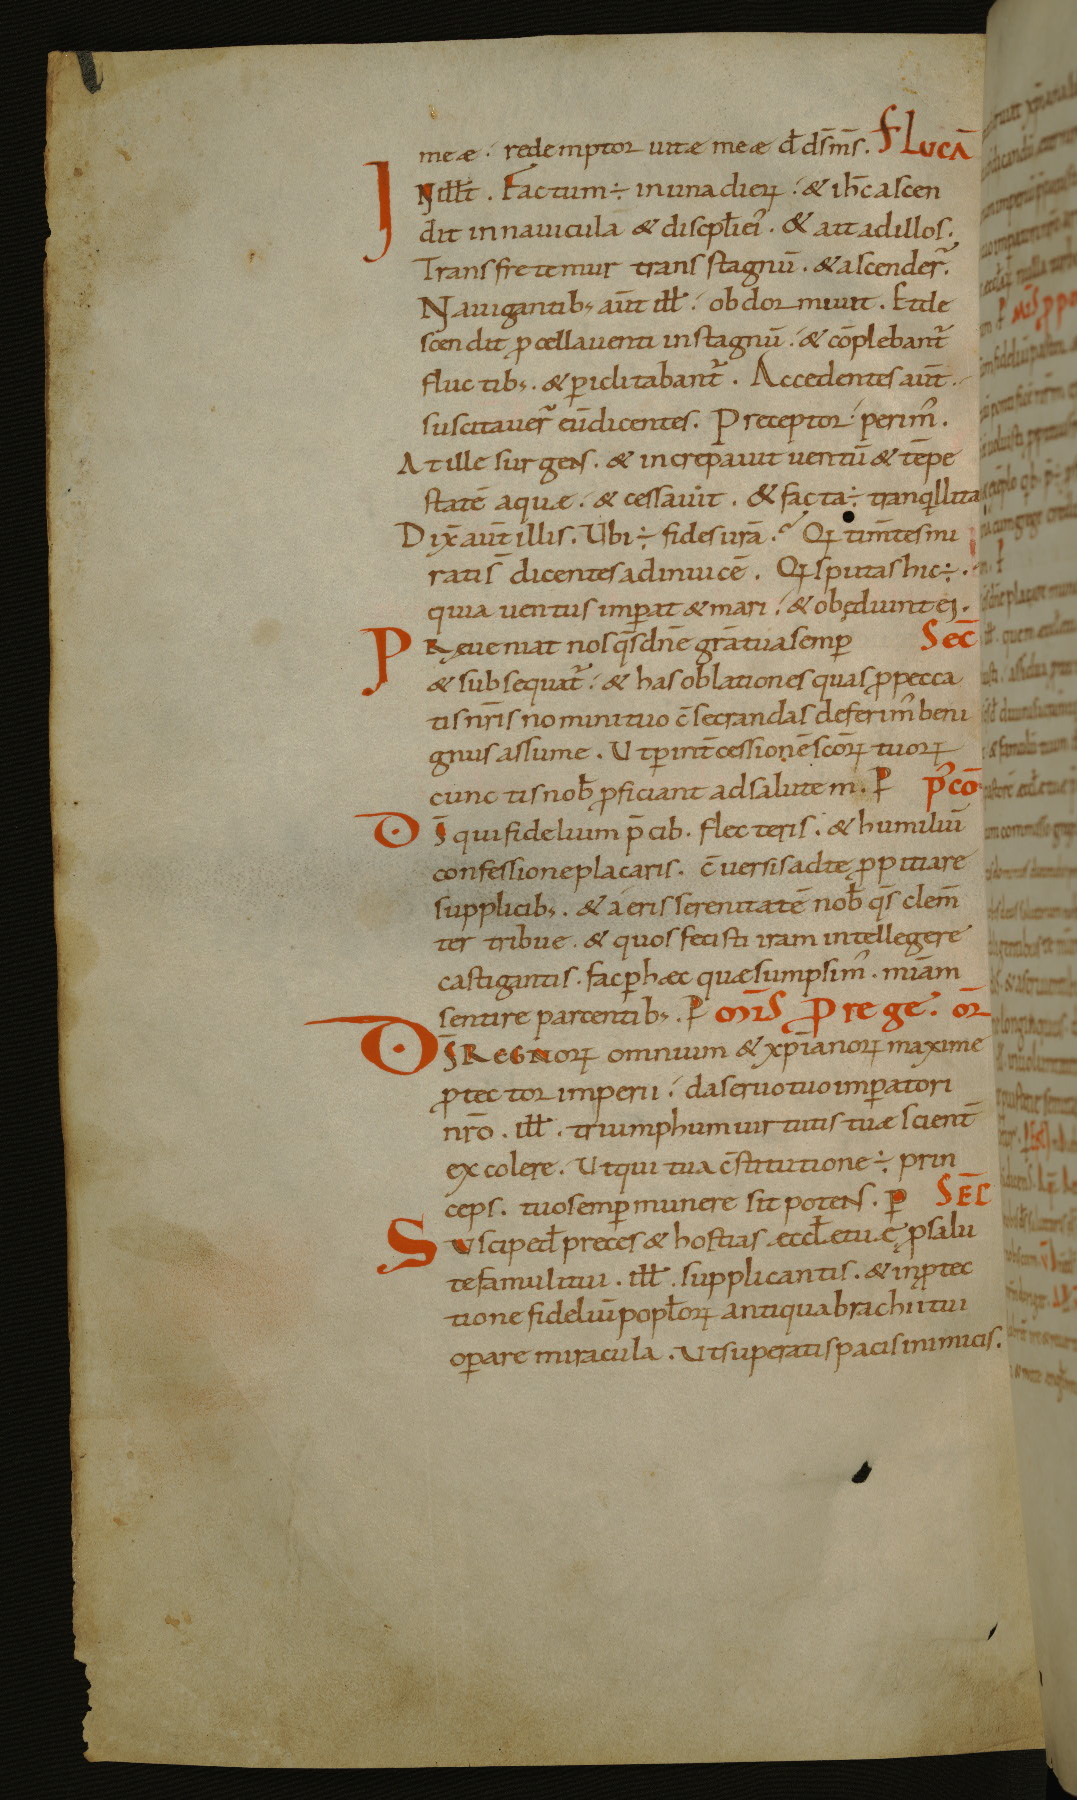 meæ. redemptor uitæ meæ d̄ d̄s m̄s. S̄ LUCĀ
IN ill̄t. Factum ÷ in una dierꝝ. & ih̄c ascen
dit in nauiculā & discipl̄i ei᷒. & ait ad illos.
Transfretemur trans stagnū. & ascender̄.
Nauigantib; aūt ill̄. obdormiuit. Et de
scendit ꝓcella uenti in stagnū. & cōplebant̄
fluctib;. & ꝑiclitabant̄. Accedentes aūt
suscitauer̄ eū dicentes. Preceptor perim᷒.
At ille surgens. & increpauit uentū & tēpe
statē aquæ. & cessauit. & facta ÷ tranqllita
Dix̄ aūt illis. Ubi ÷ fides urā. Qꝫ tim̄tes mi
rati s̄ dicentes ad inuicē. Qꝫs putas hic ÷.
quia uentus imꝑat & mari. & obędiunt ei.
PRęueniat nos q̄s dn̄e grā tua semꝑ Sec̄
& subsequat̄. & has oblationes quas ꝓ pecca
tis nr̄is nomini tuo c̄secrandas deferim᷒ beni
gnus assume. Ut ꝑ int̄cessionē sc̄orꝝ tuorꝝ
cunctis nob̄ ꝓficiant ad salutem. ꝑ p᷒cō
D̄s qui fidelium p̄cib. flecteris. & humiliū
confessione placaris. c̄uersis ad te ꝓpitiare
supplicib;. & aeris serenitatē nob̄ q̄s clem̄
ter tribue. & quos fecisti iram intellegere
castigantis. fac ꝑ hæc quæ sumpsim᷒. miām
sentire parcentib;. ꝑ MIS̄ ꝓ rege. OR̄
D̄S REGNorꝝ omnium & xp̄ianorꝝ maxime
ꝓtector imperii. da seruo tuo imꝑatori
nr̄o. ill̄. triumphum uirtutis tuæ scient̄
excolere. Ut qui tua c̄stitutione ÷ prin
ceps. tuo semꝑ munere sit potens. ꝑ SEC̄
Suscipe d̄ preces & hostias æccl̄e tuę ꝓ salu
te famuli tui. ill̄. supplicantis. & in ꝓtec
tione fideliū popl̄orꝝ antiqua brachii tui
oꝑare miracula. Ut superatis pacis inimicis.